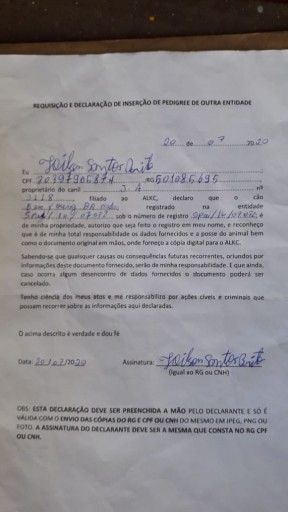 REQUISIÇÃO E DECLARAÇÃO DE INSERÇÃO DE PEDIGREE DE OUTRA ENTIDADE
20 de 07 2020
Eu Joilson Santos Brito
CPF RG 501085695
proprietário do canil J. A nº
filiado ao ALKC, declaro que o cão
registrado na entidade
sob o número de registro é
de minha propriedade, autorizo que seja feito o registro em meu nome, e reconheço
que é de minha total responsabilidade os dados fornecidos e a posse do animal bem
como o documento original em mãos, onde forneço a cópia digital para o ALKC.
Sabendo-se que quaisquer causas ou consequências futuras recorrentes, oriundos por
informações deste documento fornecido, serão de minha responsabilidade. E que ainda,
caso ocorra algum desencontro de dados fornecidos o documento poderá ser
cancelado.
Tenho ciência dos meus atos e me responsabilizo por ações cíveis e criminais que
possam recorrer sobre as informações aqui declaradas.
O acima descrito é verdade e dou fé
Data: 20/07/2020 Assinatura: Joilson Santos Brito
(igual ao RG ou CNH)
OBS: ESTA DECLARAÇÃO DEVE SER PREENCHIDA A MÃO PELO DECLARANTE E SÓ É
VÁLIDA COM O ENVIO DAS CÓPIAS DO RG E CPF OU CNH DO MESMO EM JPEG, PNG OU
FOTO. A ASSINATURA DO DECLARANTE DEVE SER A MESMA QUE CONSTA NO RG CPF
OU CNH.